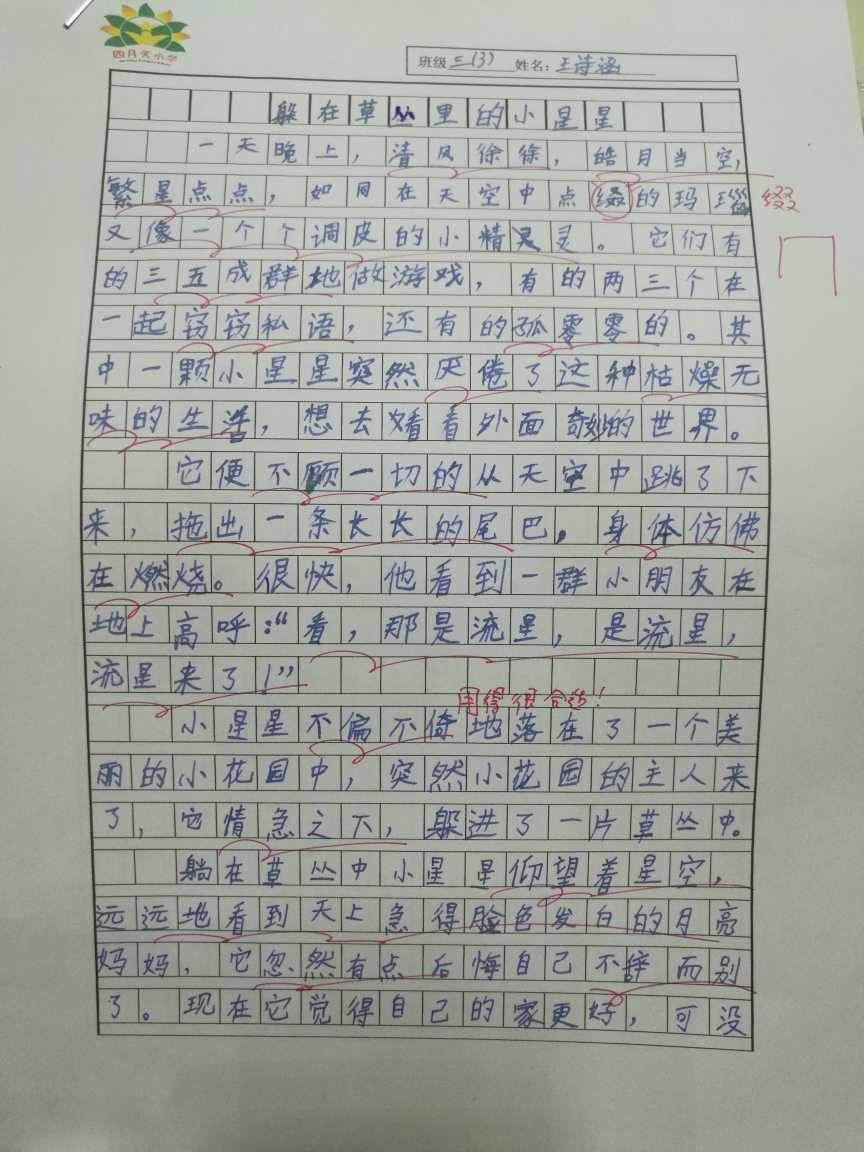 四月天小学
班级三(3) 姓名:王诗涵
躲在草丛里的小星星
一天晚上,清风徐徐,皓月当空,
繁星点点,如同在天空中点缀的玛瑙 缀
又像一个个调皮的小精灵灵。它们有
的三五成群地做游戏,有的两三个在
一起窃窃私语,还有的孤零零的。其
中一颗小星星突然厌倦了这种枯燥无
味的生活,想去看看外面奇妙的世界。
它便不顾一切的从天空中跳了下
来,拖出一条长长的尾巴,身体仿佛
在燃烧。很快,他看到一群小朋友在
地上高呼:“看,那是流星,是流星,
流星来了!”
用得很合适!
小星星不偏不倚地落在了一个美
丽的小花园中,突然小花园的主人来
了,它情急之下,躲进了一片草丛中。
躺在草丛中小星星仰望着星空,
远远地看到天上急得脸色发白的月亮
妈妈,它忽然有点后悔自己不辞而别
了。现在它觉得自己的家更好,可没